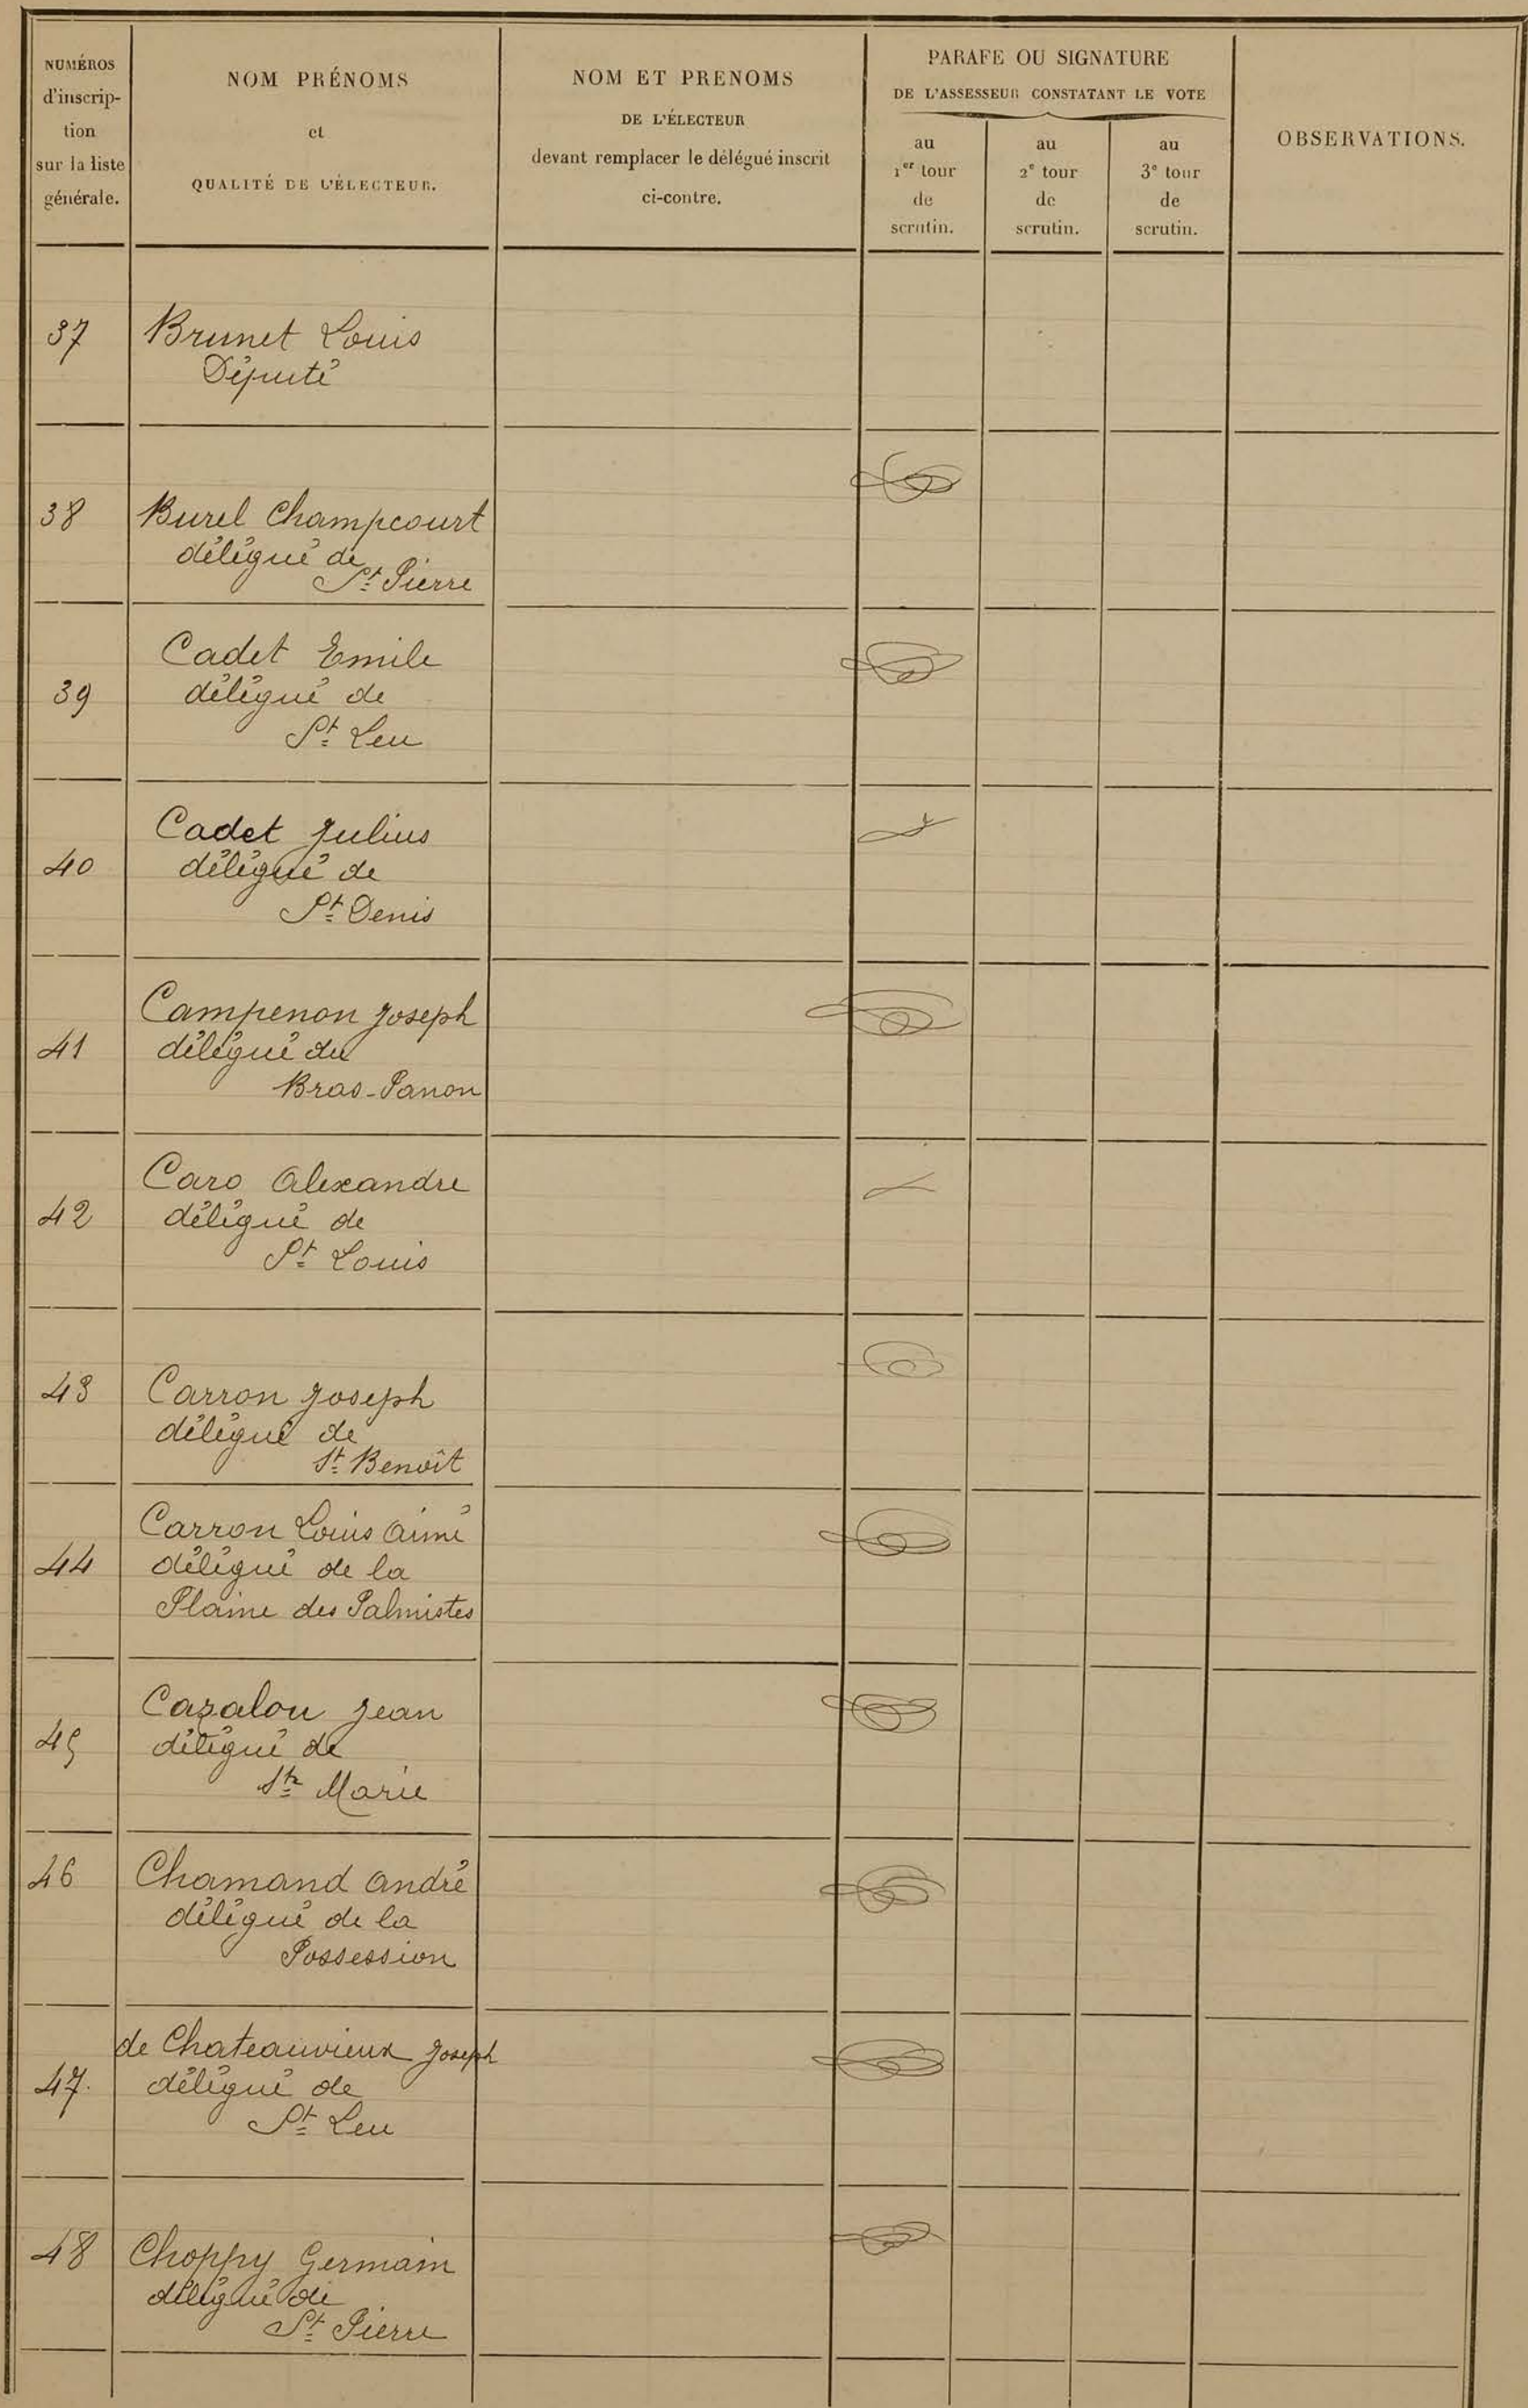 NUMÉROS
d'inscrip-
tion
sur la liste
générale.
NOM PRÉNOMS
et
QUALITÉ DE L'ÉLECTEUR.
NOM ET PRENOMS
DE L'ÉLECTEUR
devant remplacer le délégué inscrit
ci-contre.
PARAFE OU SIGNATURE
DE L'ASSESSEUR CONSTATANT LE VOTE
au
1er tour
de
scrutin.
au
2e tour
de
scrutin.
au
3e tour
de
scrutin.
OBSERVATIONS.
37 Brunet Louis
Député
38 Burel Champcourt
délégué de
St Pierre
Cadet Emile
39 délégué de
St Leu
Cadet Julius
40 délégué de
St Denis
Campenon Joseph
41 délégué du
Bras-Panon
Caro Alexandre
42 délégué de
St Louis
43 Carron Joseph
délégué de
St Benoît
Carron Louis Aimé
44 délégué de la
Plaine des Palmistes
Cazalou Jean
45 délégué de
Ste Marie
46 Chamand André
délégué de la
Possession
de Chateauvieux Joseph
47. délégué de
St Leu
48 Choppy Germain
délégué de
St Pierre